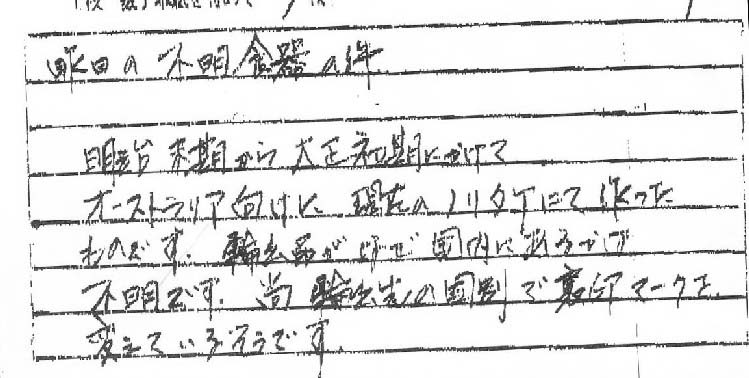 昨日の不明食器の件
明治末期から大正初期にかけて
オーストラリア向けに 現在のノリタケにて作った
ものです. 輸出品が何で国内にあるかは
不明です. 尚 輸出先の国別で裏印マークを
変えているそうです.